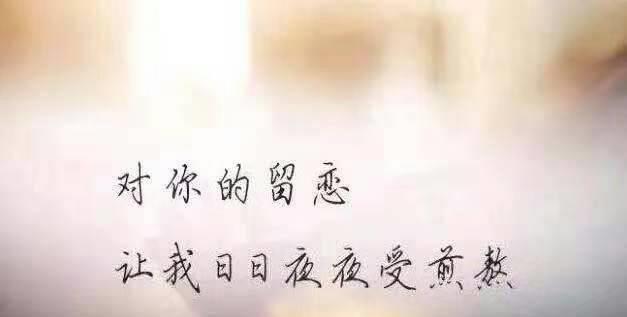 对你的留恋
让我日日夜夜受煎熬